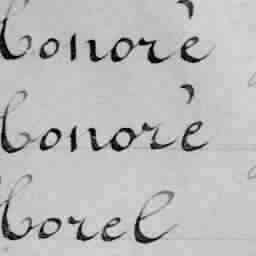 Honorè
Honorè
Horel